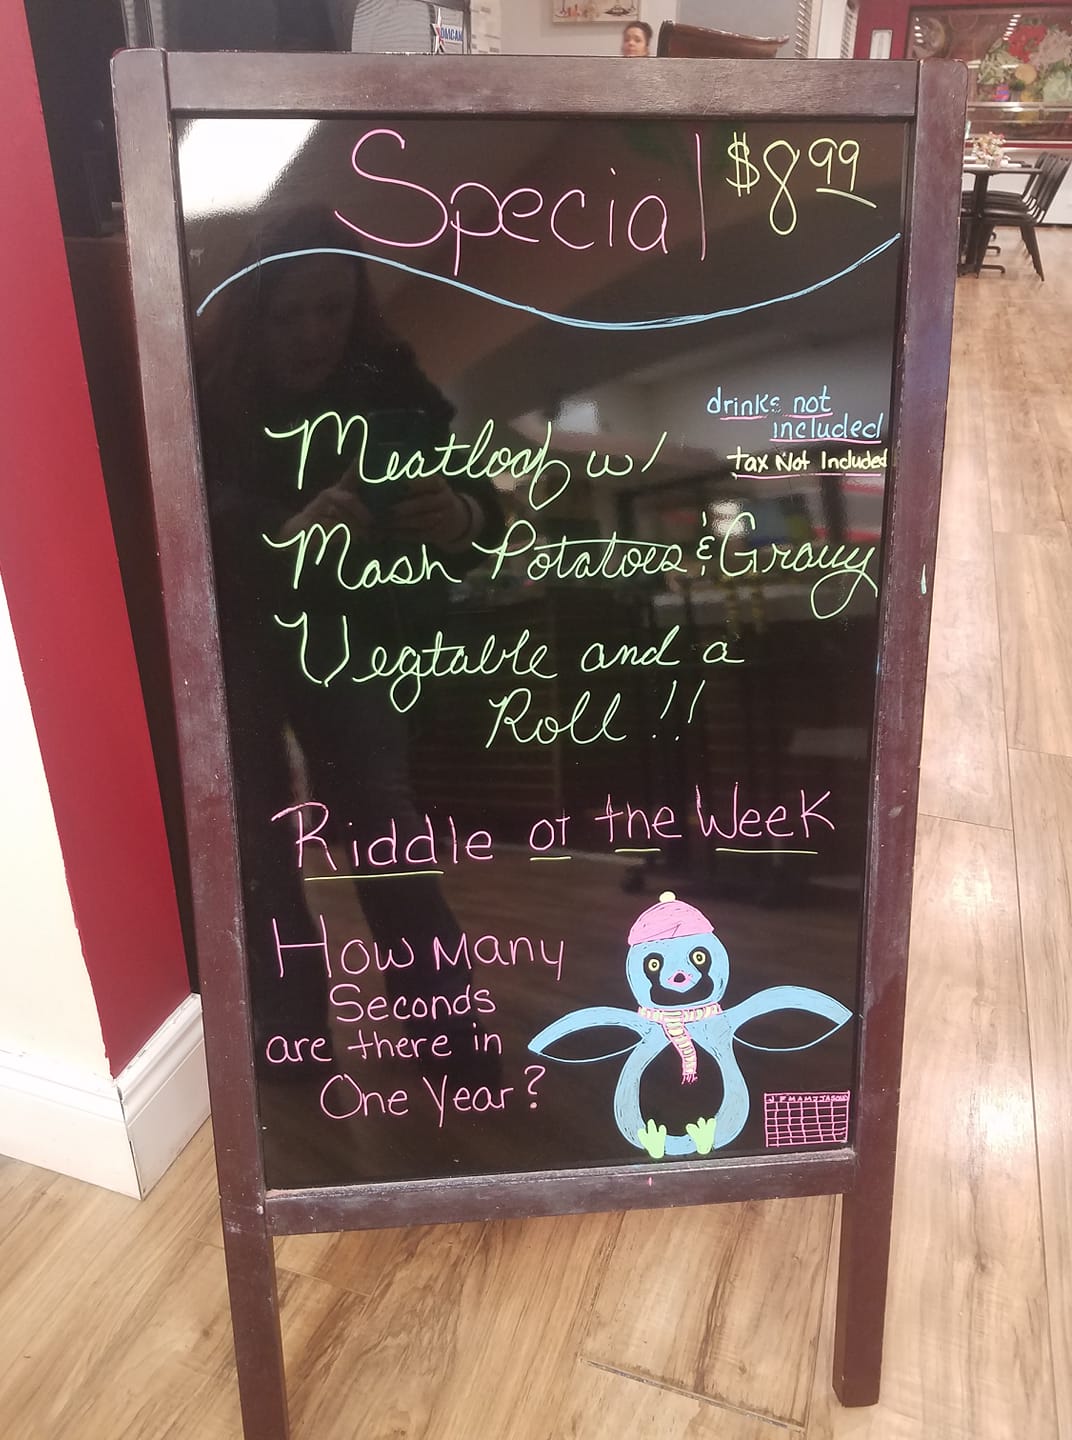 Special $8.99
drinks not
included
tax Not Included
Meatloaf w/
Mash Potatoes & Gravy
Vegtable and a
Roll!!
Riddle of the Week
How Many
Seconds
are there in
One Year?
J F M A M J J A S O N D